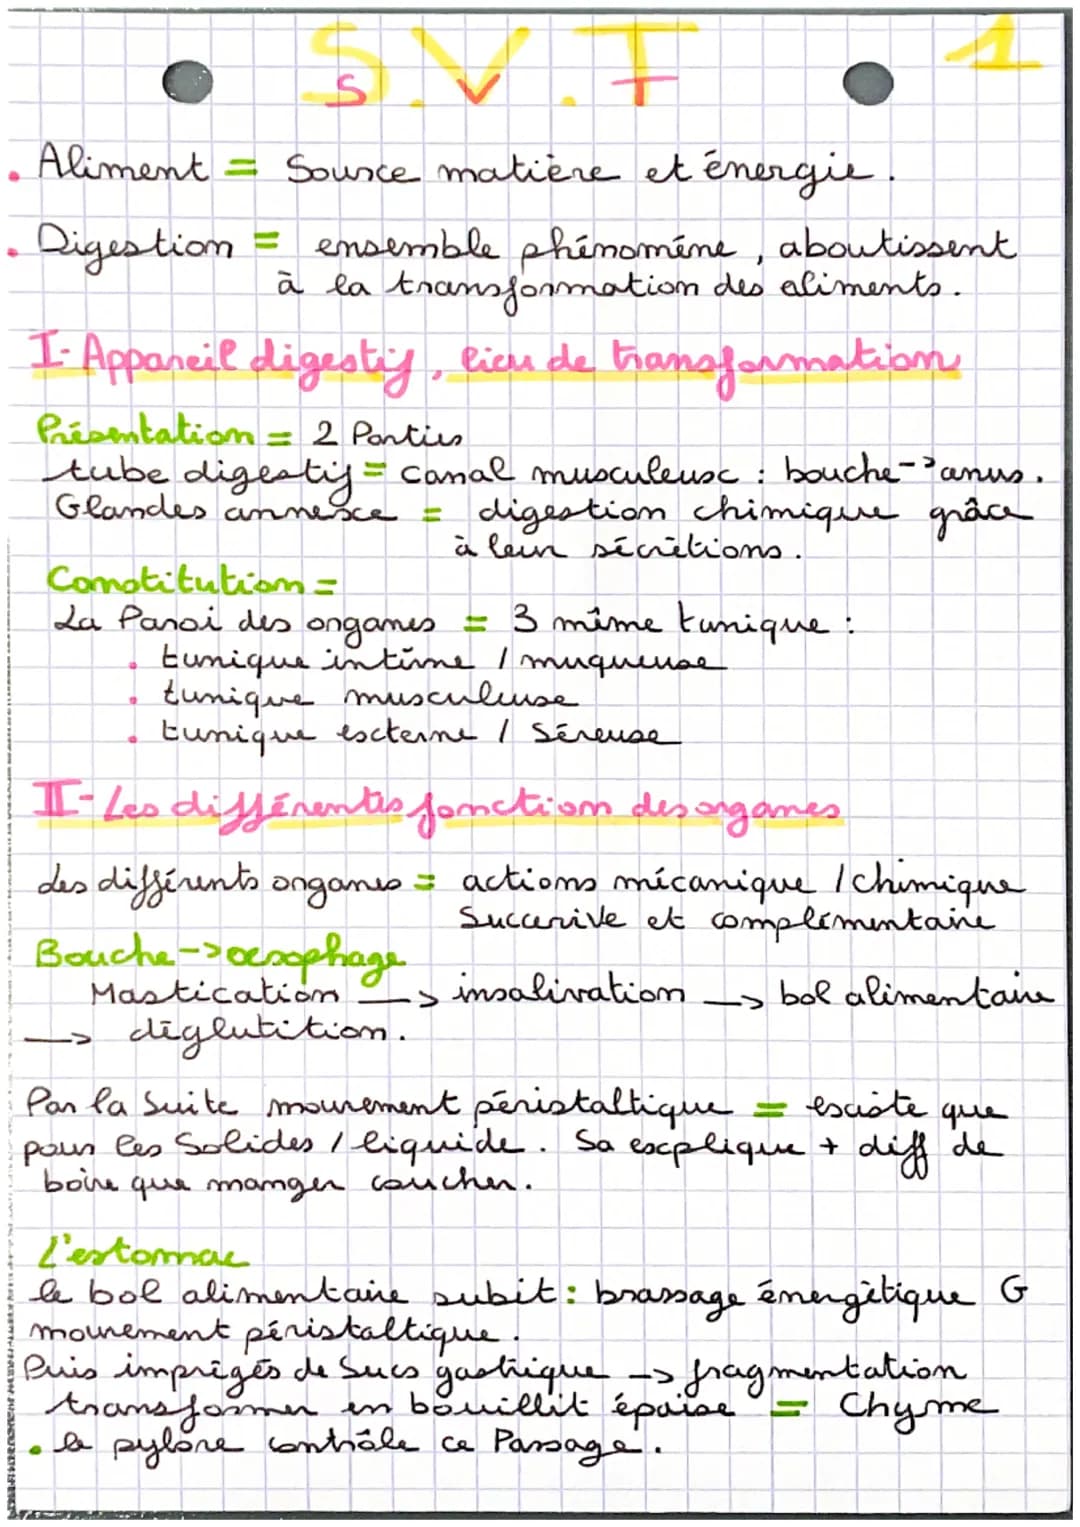 S.V.T 1
S V T
. Aliment = Source matière et énergie.
. Digestion = ensemble phénomène, aboutissent
à la transformation des aliments.
I- Appareil digestif, lieu de transformation
Présentation = 2 Parties
tube digestif = canal musculeuse : bouche -> anus.
Glandes annexe = digestion chimique grâce
à leur sécrétions.
Constitution =
La Paroi des organes = 3 même tunique :
. tunique intime / muqueuse
. tunique musculeuse
. tunique externe / Séreuse
II- Les différentes fonction des organes
des différents organes = actions mécanique / chimique
Succesive et complémentaire
Bouche -> oesophage
Mastication -> insalivation -> bol alimentaire
-> déglutition.
Par la Suite mouvement péristaltique = existe que
pour les Solides / liquide. Sa explique + diff de
boire que manger coucher.
L'estomac
le bol alimentaire subit : brassage énergétique G
mouvement péristaltique.
Puis imprégés de Sucs gastrique -> fragmentation
transformer en bouillit épaise = Chyme
. le pylore contrôle ce Passage.